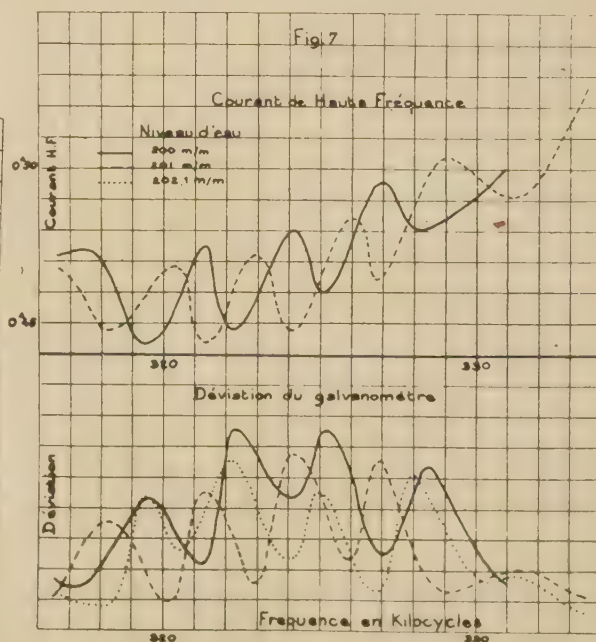 Fig 7
Courant de Haute Fréquance
Niveau d'eau
200 m/m
201 m/m
202,1 m/m
Courant H.F
0ᴬ30
0ᴬ25
320
330
Déviation du galvanomètre
Déviation
Frequance en Kilocycles
320
330